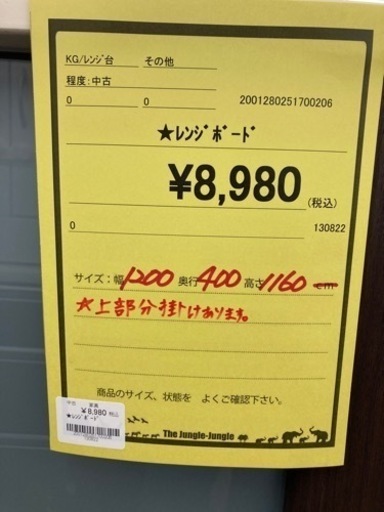 KG/ﾚﾝｼﾞ台 その他
程度:中古
0 0 2001280251700206
★ﾚﾝｼﾞﾎﾞｰﾄﾞ
¥8,980
(税込)
0 130822
サイズ:幅1200 奥行400 高さ1160 cm
☆上部分掛けあります。
商品のサイズ、状態を よくご確認下さい。
The Jungle-Jungle
¥8,980 税込
★ﾚﾝｼﾞﾎﾞｰﾄﾞ
130822